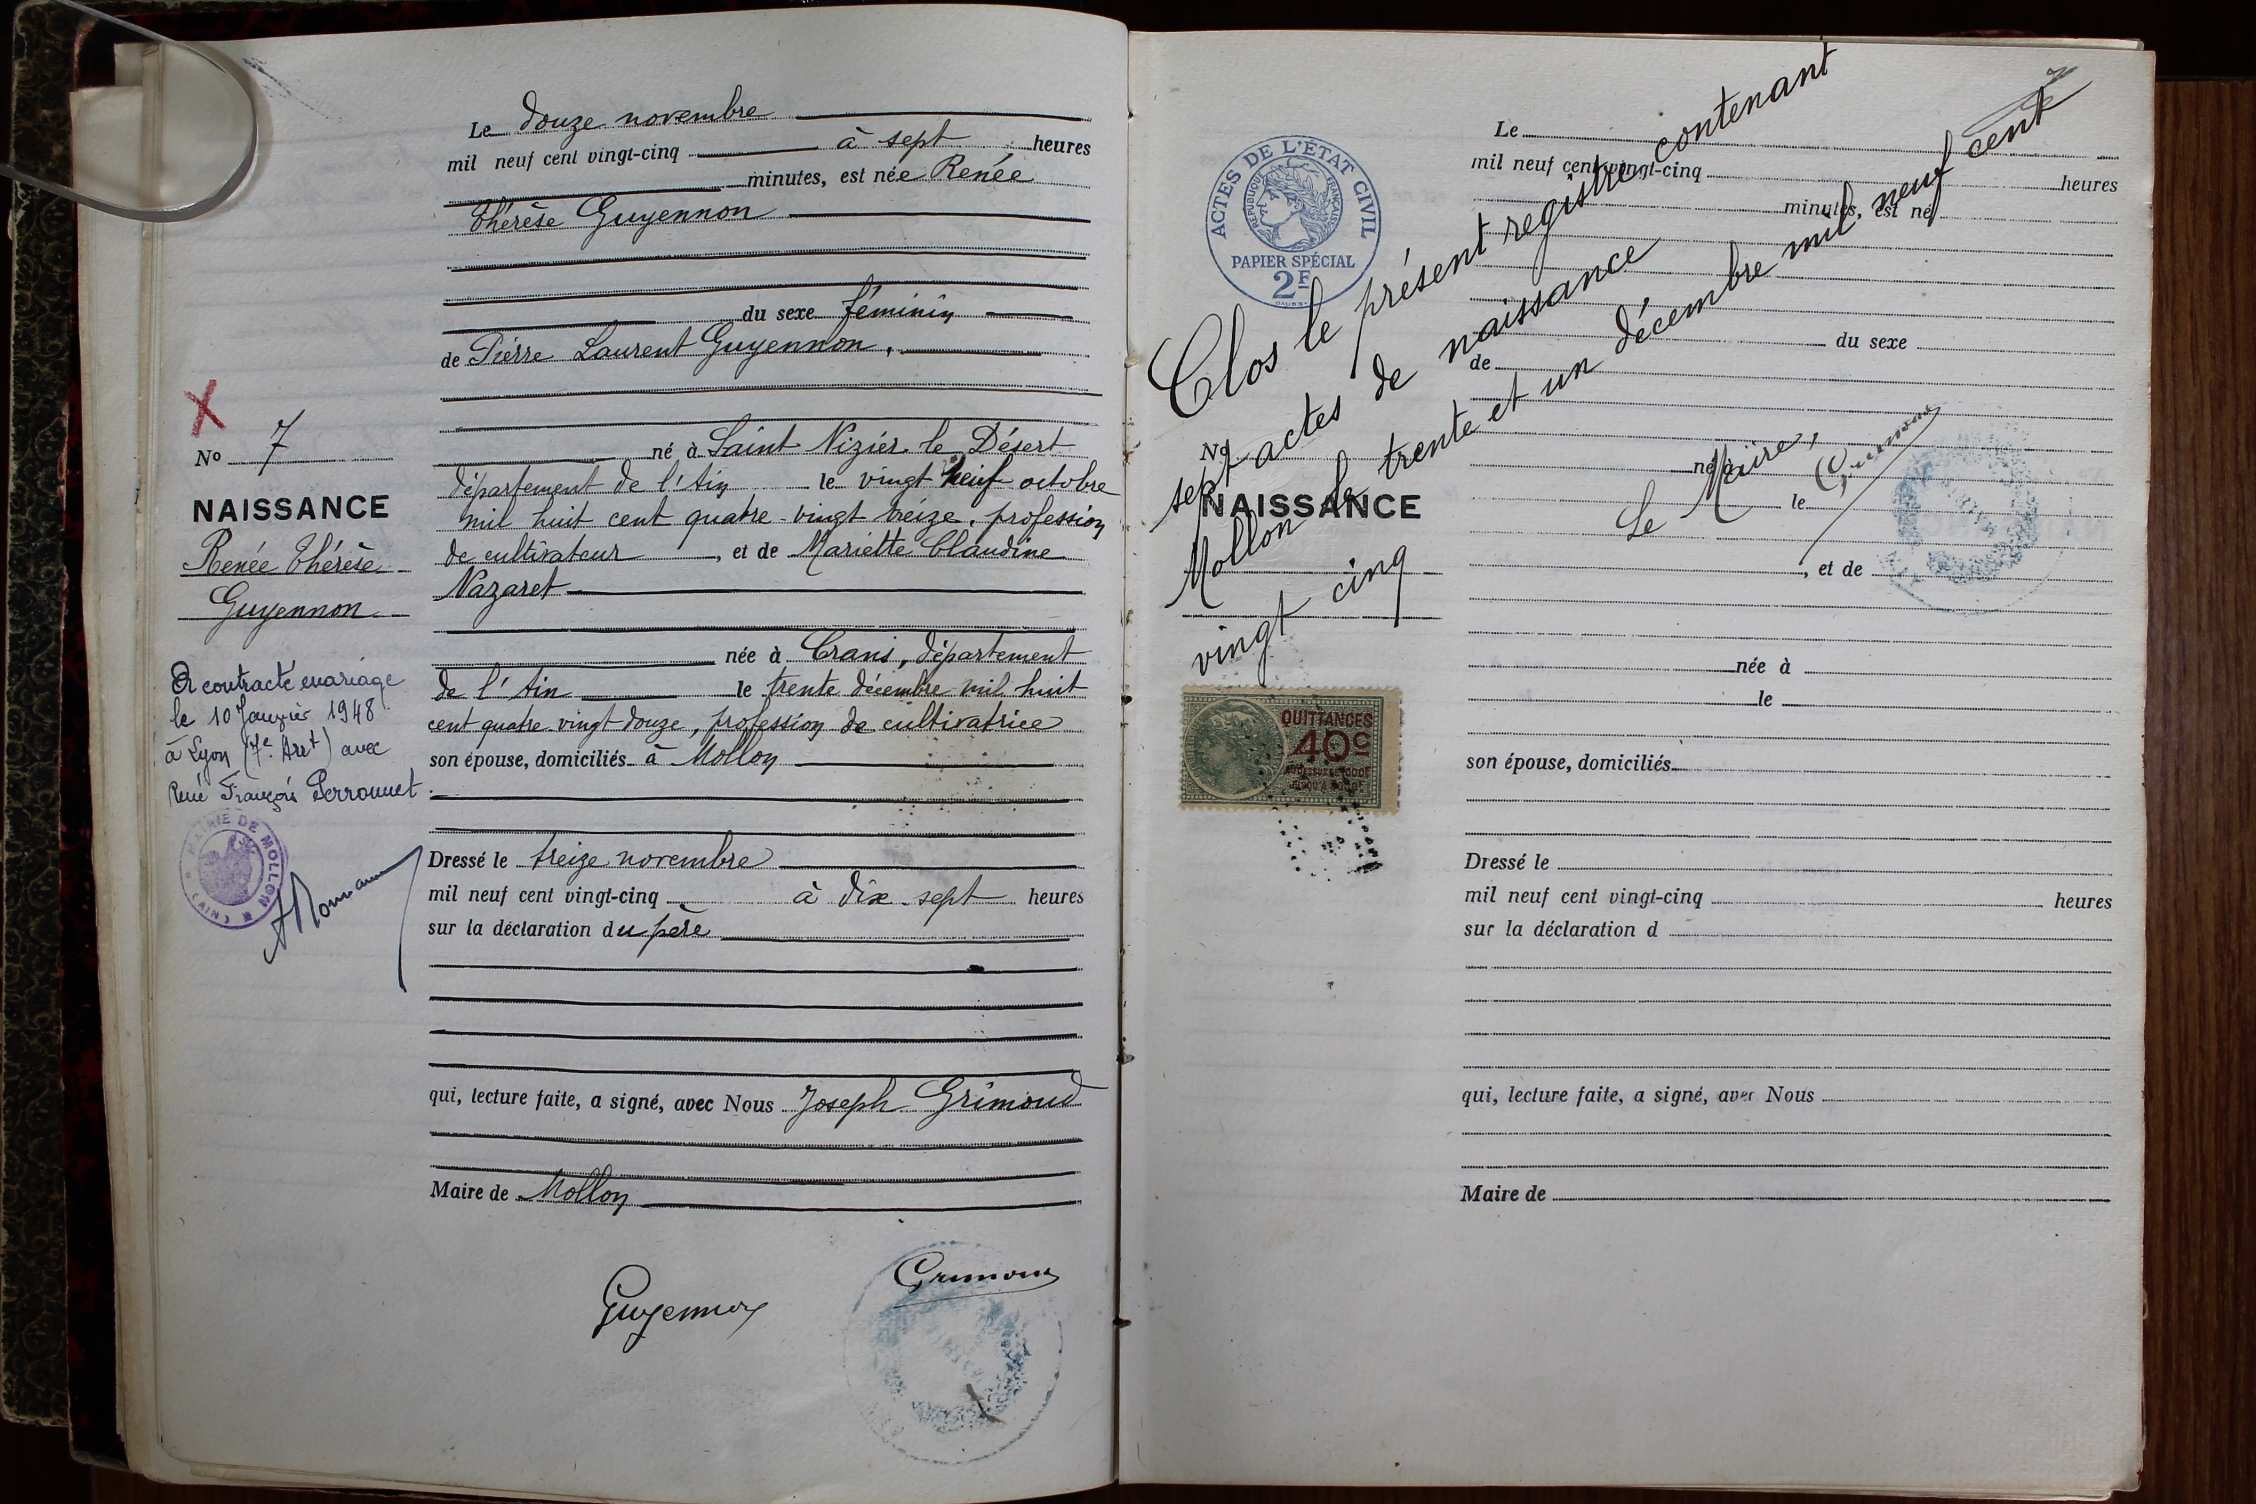 Le douze novembre
mil neuf cent vingt-cinq à sept heures
minutes, est née Renée
Thérèse Guyennon
du sexe féminin
de Pierre Laurent Guyennon,
né à Saint Nizier le Désert
département de l'Ain le vingt neuf octobre
mil huit cent quatre-vingt treize, profession
de cultivateur, et de Mariette Claudine
Nazaret
née à Crans, département
de l'Ain le trente décembre mil huit
cent quatre-vingt douze, profession de cultivatrice
son épouse, domiciliés à Mollon
Dressé le treize novembre
mil neuf cent vingt-cinq à dix-sept heures
sur la déclaration du père
qui, lecture faite, a signé, avec Nous Joseph Grimoud
Maire de Mollon
Guyennon
X
No 7
NAISSANCE
Renée Thérèse
Guyennon
A contracté mariage
le 10 Janvier 1948
à Lyon (7e Arrt) avec
René François Perrounet
MAIRIE DE MOLLON
(AIN)
ACTES DE L'ETAT CIVIL
REPUBLIQUE FRANÇAISE
PAPIER SPÉCIAL
2F
Clos le présent registre contenant
sept actes de naissance
Mollon le trente et un décembre mil neuf cent
vingt cinq
Le Maire,
QUITTANCES
40c
Le
mil neuf cent vingt-cinq heures
minutes, est né
du sexe
de
No
NAISSANCE
né à
le
, et de
née à
le
son épouse, domiciliés
Dressé le
mil neuf cent vingt-cinq heures
sur la déclaration d
qui, lecture faite, a signé, avec Nous
Maire de